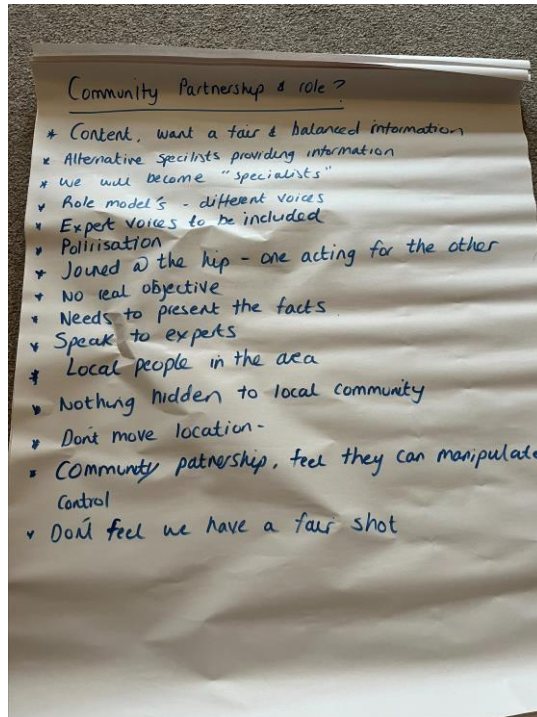 Community Partnership & role?
* Content, want a fair & balanced information
* Alternative specilists providing information
* we will become "specialists"
* Role model's - different voices
* Expert voices to be included
* Pollrisation
* Joined @ the hip - one acting for the other
* No real objective
* Needs to present the facts
* Speak to experts
* Local people in the area
* Nothing hidden to local community
* Dont move location-
* Community patnership, feel they can manipulate
Control
* Don't feel we have a fair shot